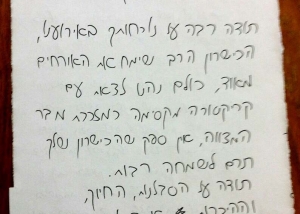 תודה רבה על נוכחותך באירוענו,
הכישרון הרב שימח את האורחים
מאוד, כולם נהנו לצאת עם
קריקטורה מקסימה כמזכרת מבר
המצווה, אין ספק שהכישרון שלך
תרם לשמחה רבות.
תודה על הסבלנות, החיוך,